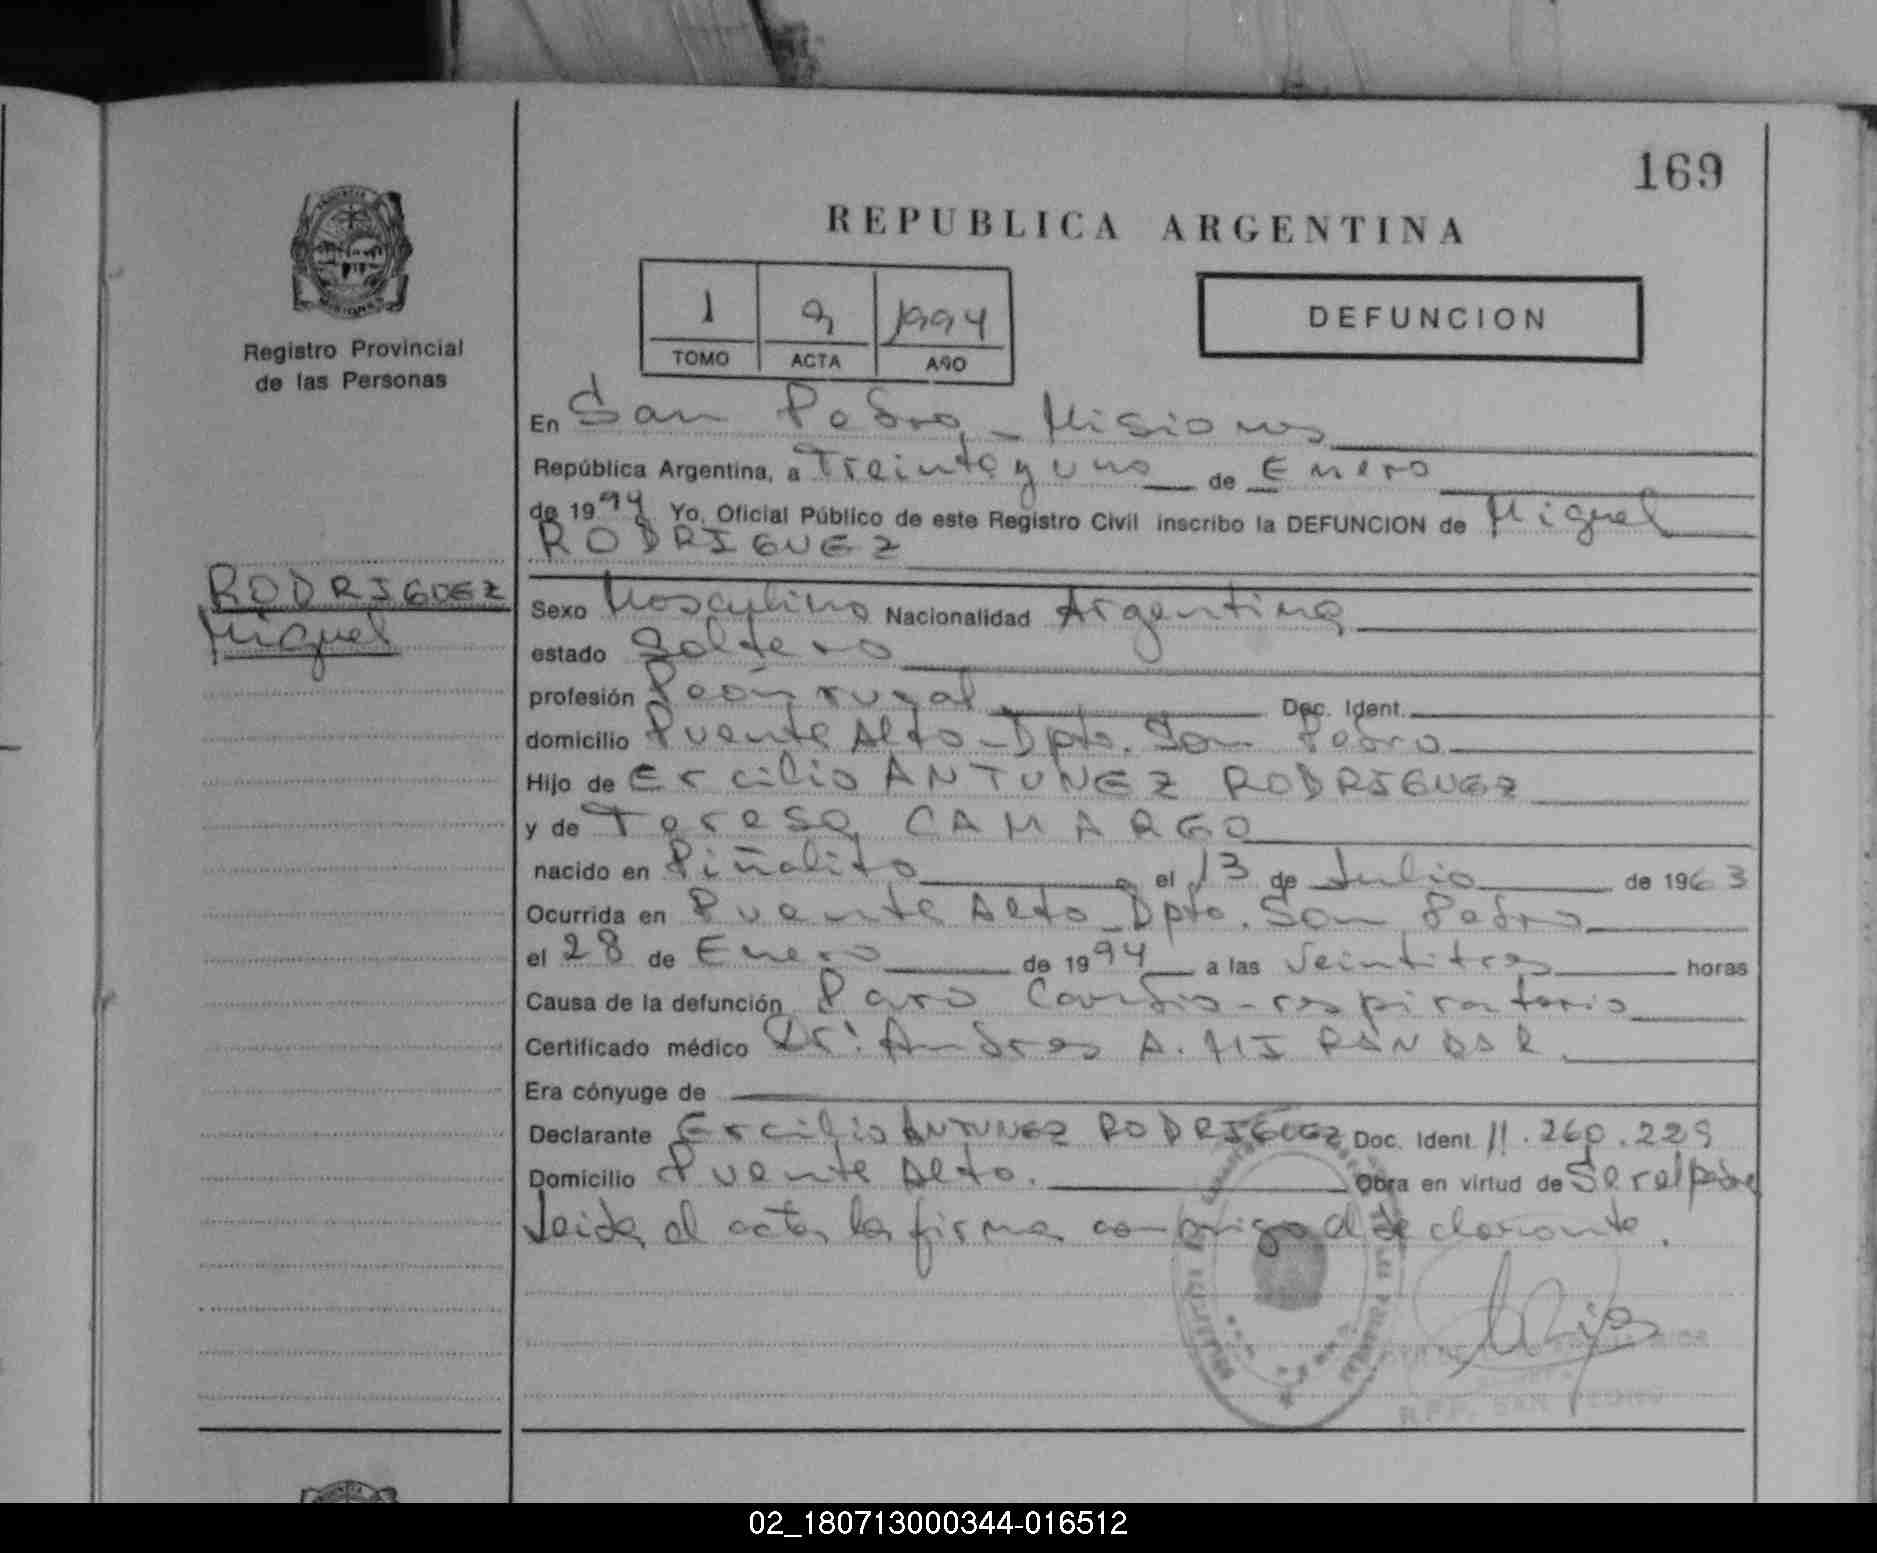 169
REPUBLICA ARGENTINA
1 9 1994
TOMO ACTA AÑO
DEFUNCION
Registro Provincial
de las Personas
RODRIGUEZ
Miguel
En San Pedro - Misiones
República Argentina, a Treinta y uno de Enero
de 1994 Yo, Oficial Público de este Registro Civil inscribo la DEFUNCION de Miguel
RODRIGUEZ
Sexo Masculino Nacionalidad Argentina
estado Soltero
profesión Peón rural Doc. Ident.
domicilio Puente Alto - Dpto. San Pedro
Hijo de Ercilio ANTUNEZ RODRIGUEZ
y de Teresa CAMARGO
nacido en Piñalito el 13 de Julio de 1963
Ocurrida en Puente Alto - Dpto. San Pedro
el 28 de Enero de 1994 a las Veintitres horas
Causa de la defunción Paro Cardio-respiratorio
Certificado médico Dr. Andres A.
Era cónyuge de
Declarante Ercilio ANTUNEZ RODRIGUEZ Doc. Ident. 11.260.229
Domicilio Puente Alto. Obra en virtud de Ser el padre
Leida el acta la firma conmigo el declarante.
R.P.P. SAN PEDRO
02_180713000344-016512